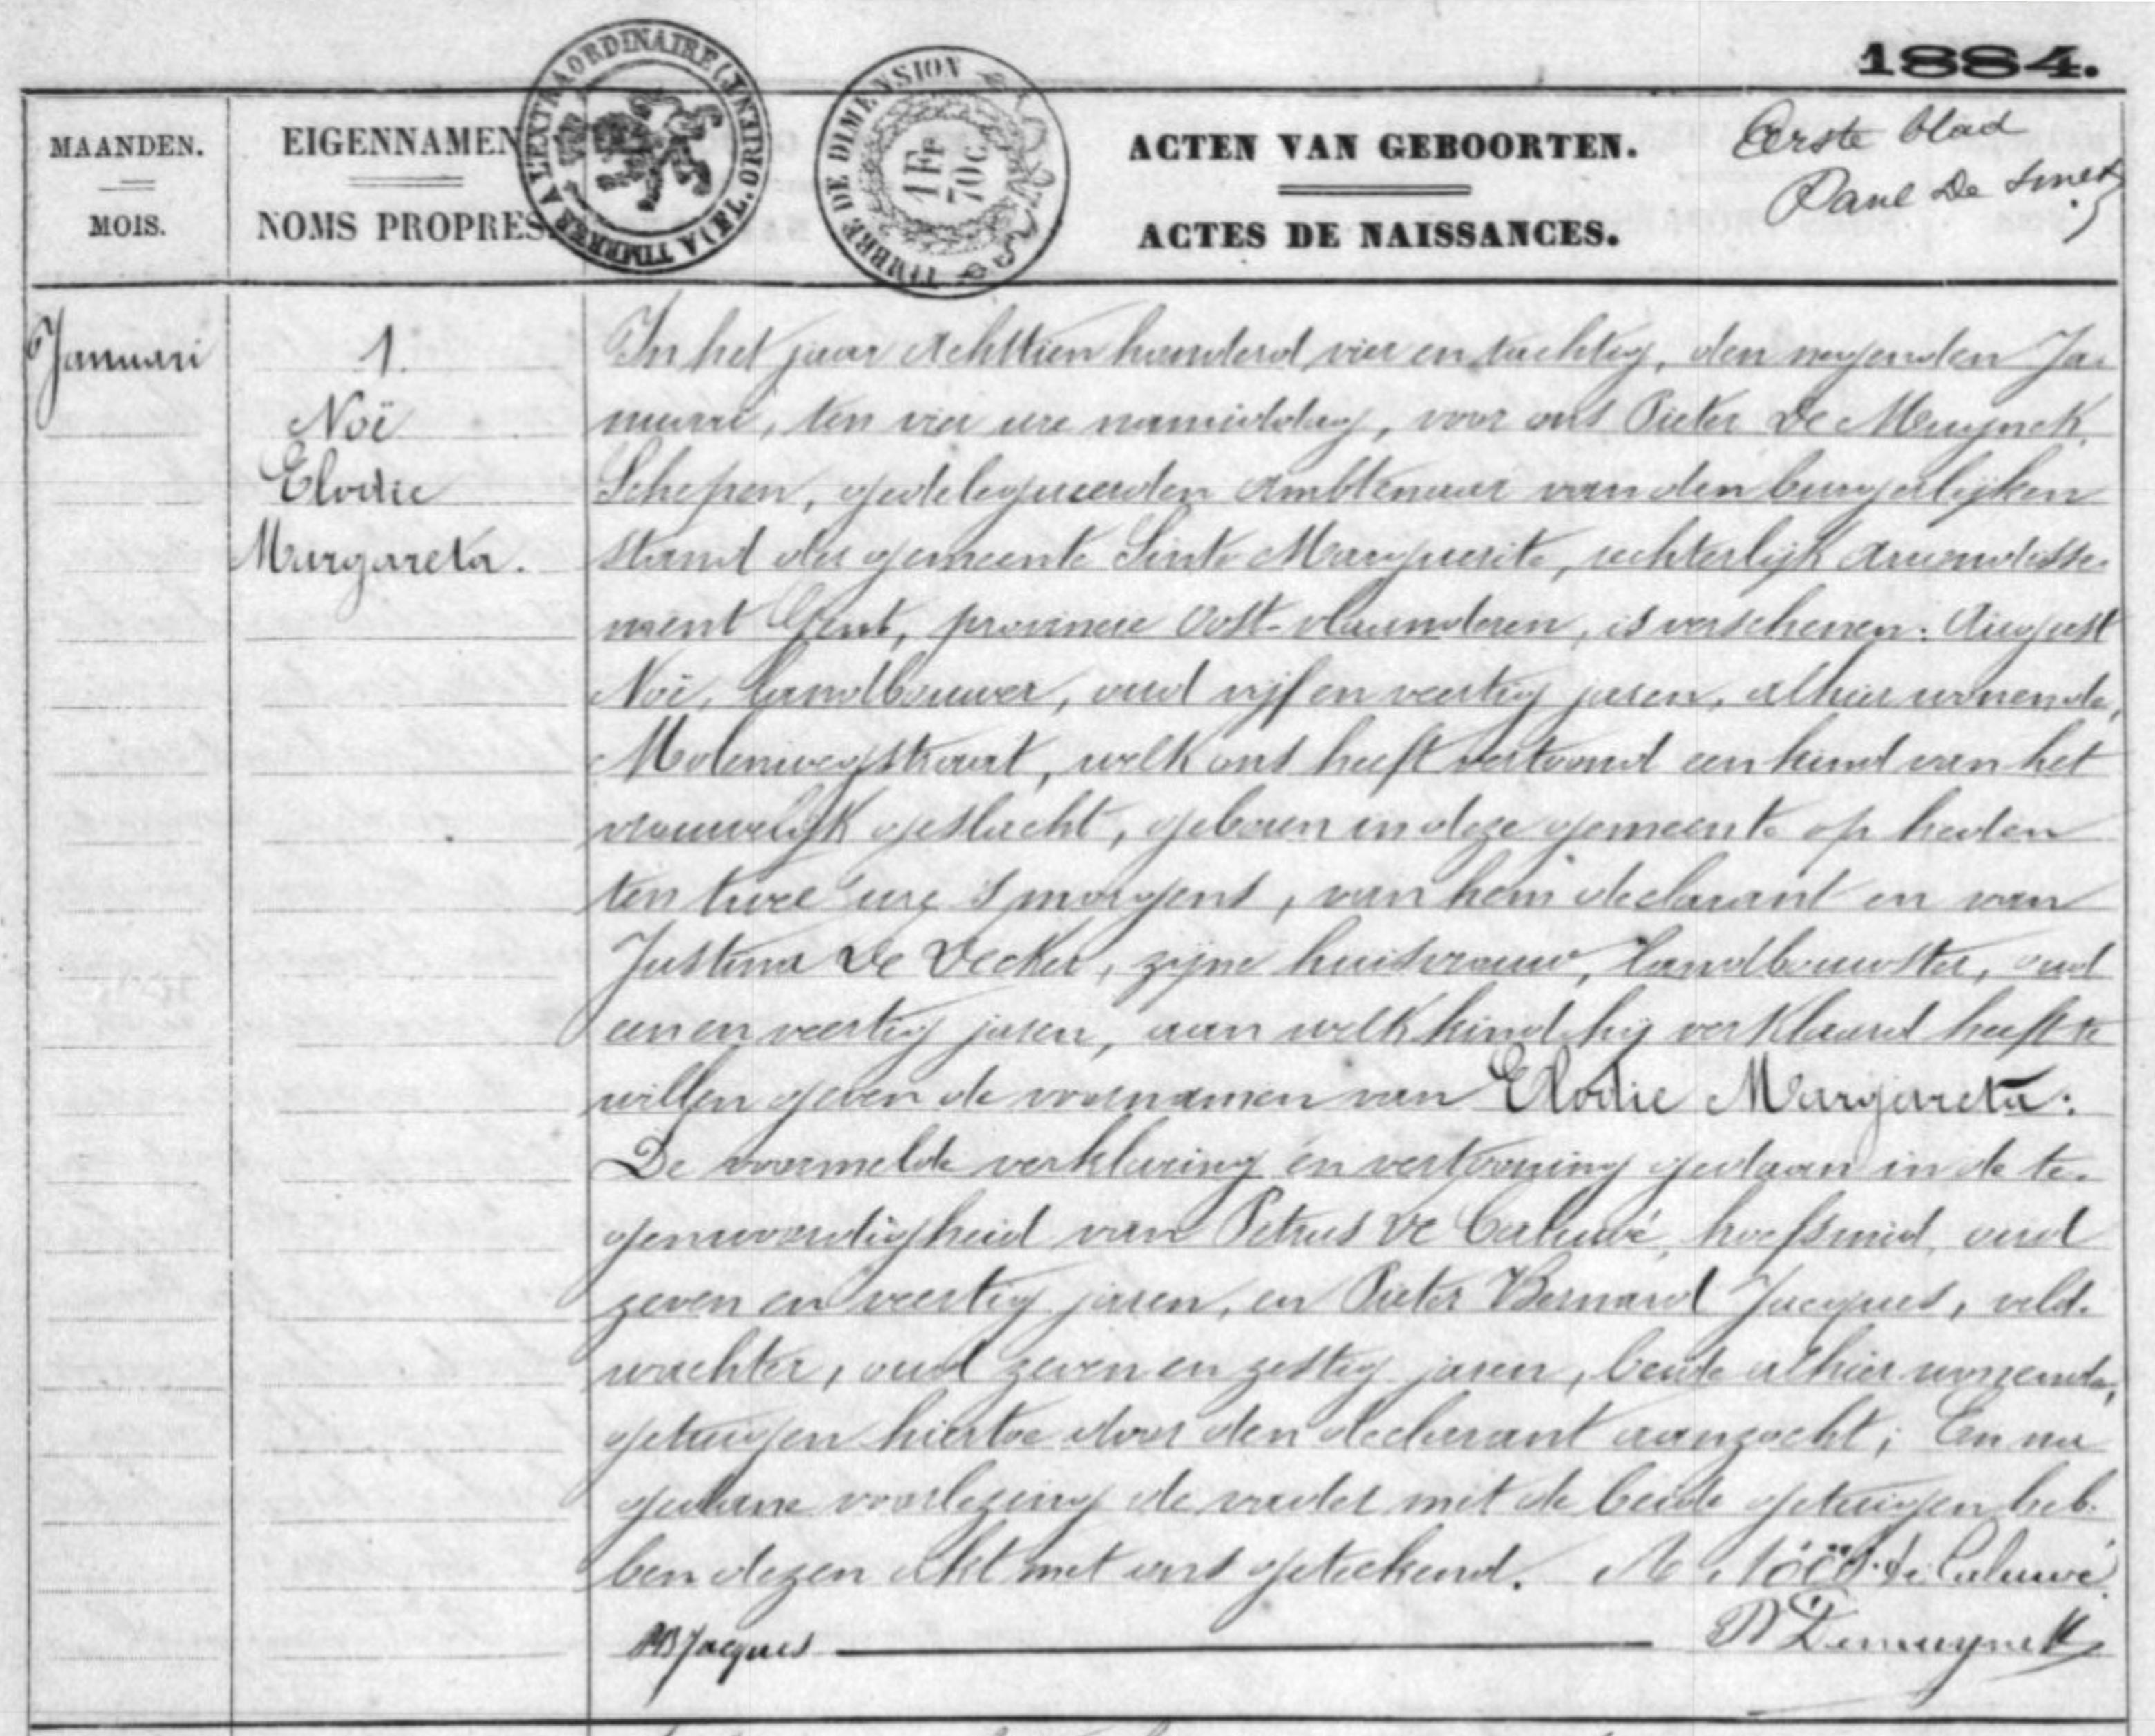 1884.
MAANDEN.
MOIS.
EIGENNAMEN
NOMS PROPRES.
TIMBRE A L'EXTRAORDINAIRE
TIMBRE DE DIMENSION
1 FR
70 C
ACTEN VAN GEBOORTEN.
ACTES DE NAISSANCES.
Eerste blad
Paul De Smet
Januari
1.
Noë
Elodie
Margareta.
In het jaar Achttien honderd vier en tachtig, den negenden Ja-
nuari, ten vier ure namiddag, voor ons Pieter De Muynck
Schepen, gedelegueerden Ambtenaar van den burgerlijken
stand der gemeente Sinte Marguerite, rechterlijk Arrondisse-
ment Gent, provincie Oost-vlaanderen, is verschenen: August
Noë, Landbouwer, oud vijf en veertig jaren, alhier wonende,
Molenwegstraat, welk ons heeft vertoond een kind van het
vrouwelijk geslacht, geboren in deze gemeente op heden
ten twee ure 's morgens, van hem declarant en van
Justina De Decker, zijne huisvrouw, Landbouwster, oud
een en veertig jaren, aan welk kind hij verklaard heeft te
willen geven de voornamen van Elodie Margareta:
De voormelde verklaring en vertooning gedaan in de te-
genwoordigheid van Petrus De Caluwé, hoefsmid, oud
zeven en veertig jaren, en Pieter Bernard Jacques, veld-
wachter, oud zeven en zestig jaren, beide alhier wonende,
getuigen hiertoe door den declarant aanzocht; En na
gedane voorlezing de vader met de beide getuigen heb-
ben dezen akt met ons geteekend. A Noë P. de Caluwé
PB Jacques P Demuynck